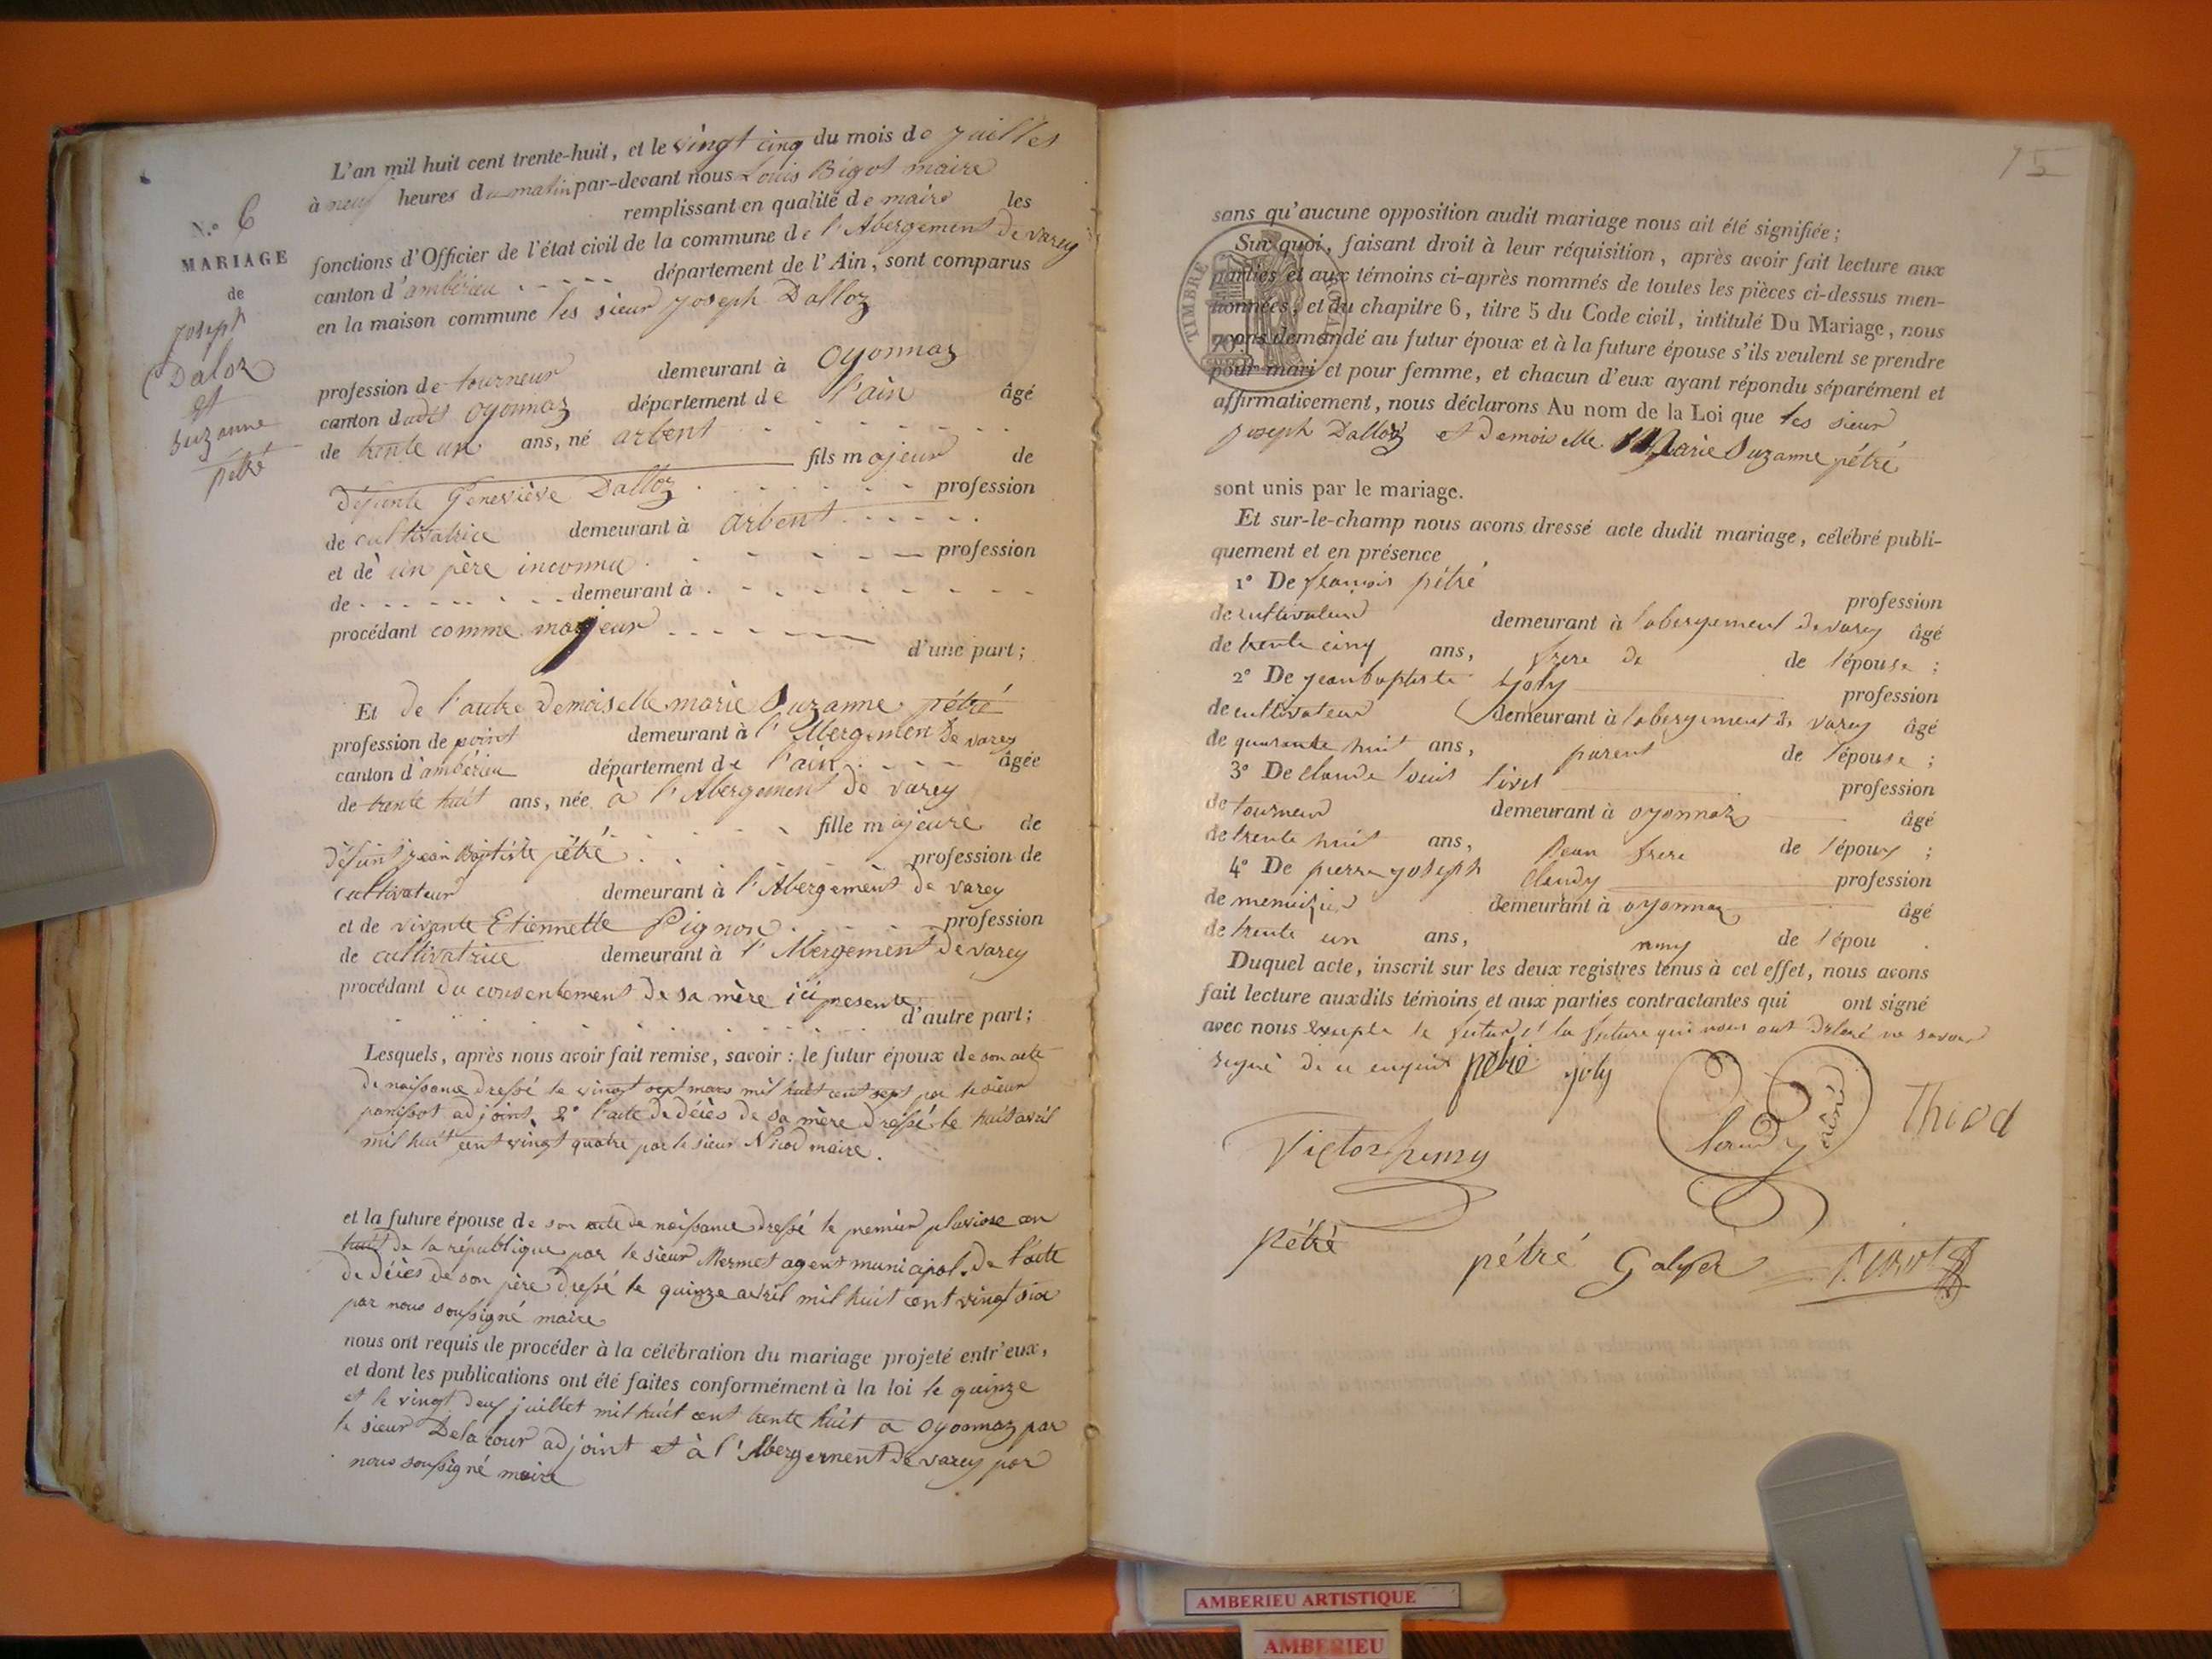 N.° 6
MARIAGE
de
joseph
Daloz
et
suzanne
pétré
L'an mil huit cent trente-huit, et le vingt cinq du mois de juillet
à neuf heures du matin par-devant nous Louis Bigot maire
remplissant en qualité de maire les
fonctions d'Officier de l'état civil de la commune de l'Abergement de varey
canton d'ambérieu département de l'Ain, sont comparus
en la maison commune les sieur joseph Dalloz
profession de tourneur demeurant à oyonnaz
canton dudit oyonnaz département de l'ain âgé
de trente un ans, né arbent
fils majeur de
défunte Geneviève Dalloz profession
de cultivatrice demeurant à arbent
et de un père inconnu profession
de demeurant à
procédant comme majeur
d'une part;
Et de l'autre demoiselle marie Suzanne pétré
profession de point demeurant à l'Abergement de varey
canton d'ambérieu département de l'ain âgée
de trente huit ans, née à l'Abergement de varey
fille majeure de
défunt jean Baptiste pétré profession de
cultivateur demeurant à l'Abergement de varey
et de vivante Etiennette Pignon profession
de cultivatrice demeurant à l'Abergement de varey
procédant du consentement de sa mère ici presente
d'autre part;
Lesquels, après nous avoir fait remise, savoir : le futur époux de son acte
de naissance dressé le vingt sept mars mil huit cent sept par le sieur
panissot adjoint. 2° l'acte de décès de sa mère dressé le huit avril
mil huit cent vingt quatre par le sieur Nicod maire.
et la future épouse de son acte de naissance dressé le premier pluviose an
huit de la république par le sieur Mermet agent municipal. De l'acte
de décès de son père dressé le quinze avril mil huit cent vingt six
par nous soussigné maire
nous ont requis de procéder à la célébration du mariage projeté entr'eux,
et dont les publications ont été faites conformément à la loi le quinze
et le vingt deux juillet mil huit cent trente huit a oyonnaz par
le sieur Delacour adjoint et à l'Abergement de varey par
nous soussigné maire
15
sans qu'aucune opposition audit mariage nous ait été signifiée;
Sur quoi, faisant droit à leur réquisition, après avoir fait lecture aux
parties et aux témoins ci-après nommés de toutes les pièces ci-dessus men-
tionnées, et du chapitre 6, titre 5 du Code civil, intitulé Du Mariage, nous
avons demandé au futur époux et à la future épouse s'ils veulent se prendre
pour mari et pour femme, et chacun d'eux ayant répondu séparément et
affirmativement, nous déclarons Au nom de la Loi que les sieur
joseph Dalloz et Demoiselle Marie Suzanne pétré
sont unis par le mariage.
TIMBRE ROYAL
Et sur-le-champ nous avons dressé acte dudit mariage, célébré publi-
quement et en présence
1° De françois pétré
profession
de cultivateur demeurant à l'abergement de varey âgé
de trente cinq ans, frere de de l'épouse ;
2° De jean baptiste joly profession
de cultivateur demeurant à l'abergement de varey âgé
de quarante huit ans, parent de l'épouse ;
3° De Claude louis profession
de tourneur demeurant à oyonnaz âgé
de trente huit ans, beau frere de l'époux ;
4° De pierre joseph Claudy profession
de menuizier demeurant à oyonnaz âgé
de trente un ans, amy de l'épou
Duquel acte, inscrit sur les deux registres tenus à cet effet, nous avons
fait lecture auxdits témoins et aux parties contractantes qui ont signé
avec nous excepte le futur et la future qui nous ont déclaré ne savoir
signé de ce enquit pétré joly
Claudy Thiod
Victor remy
pétré pétré
AMBERIEU ARTISTIQUE
AMBERIEU